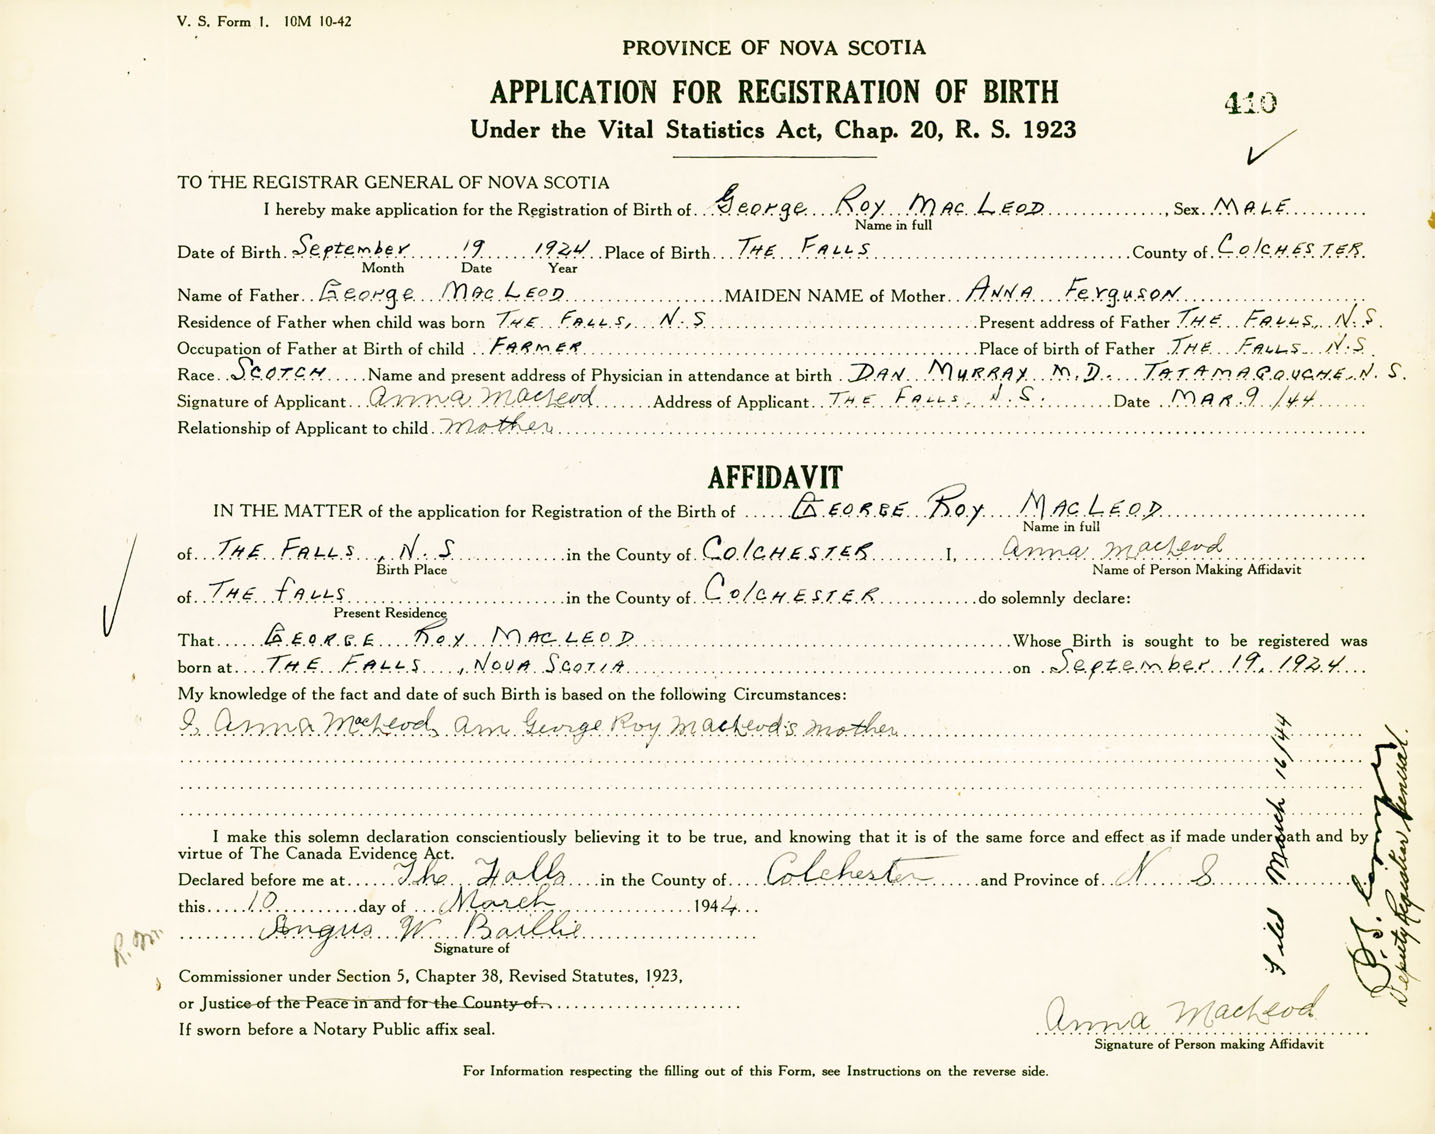 V. S. Form 1. 10M 10-42
PROVINCE OF NOVA SCOTIA
APPLICATION FOR REGISTRATION OF BIRTH
410
Under the Vital Statistics Act, Chap. 20, R. S. 1923
TO THE REGISTRAR GENERAL OF NOVA SCOTIA
I hereby make application for the Registration of Birth of George Roy MacLeod, Sex MALE
Name in full
Date of Birth September 19 1924 Place of Birth THE FALLS County of Colchester
Month Date Year
Name of Father George MacLeod MAIDEN NAME of Mother Anna Ferguson
Residence of Father when child was born THE FALLS, N.S Present address of Father THE FALLS, N.S.
Occupation of Father at Birth of child FARMER Place of birth of Father THE FALLS N.S
Race SCOTCH Name and present address of Physician in attendance at birth DAN MURRAY M.D. TATAMAGOUCHE, N.S.
Signature of Applicant Anna MacLeod Address of Applicant THE FALLS, N.S. Date MAR 9/44
Relationship of Applicant to child mother
AFFIDAVIT
IN THE MATTER of the application for Registration of the Birth of GEORGE ROY MACLEOD
Name in full
of THE FALLS, N.S in the County of COLCHESTER I, Anna MacLeod
Birth Place Name of Person Making Affidavit
of THE FALLS in the County of COLCHESTER do solemnly declare:
Present Residence
That GEORGE ROY MACLEOD Whose Birth is sought to be registered was
born at THE FALLS, NOVA SCOTIA on September 19, 1924
My knowledge of the fact and date of such Birth is based on the following Circumstances:
I, Anna MacLeod, am George Roy MacLeod's mother
I make this solemn declaration conscientiously believing it to be true, and knowing that it is of the same force and effect as if made under oath and by
virtue of The Canada Evidence Act.
Declared before me at The Falls in the County of Colchester and Province of N S
this 10 day of March 1944
Angus W Baillie
Signature of
Commissioner under Section 5, Chapter 38, Revised Statutes, 1923,
or Justice of the Peace in and for the County of
If sworn before a Notary Public affix seal.
Anna MacLeod
Signature of Person making Affidavit
For Information respecting the filling out of this Form, see Instructions on the reverse side.
Filed March 16/44
Deputy Registrar General.